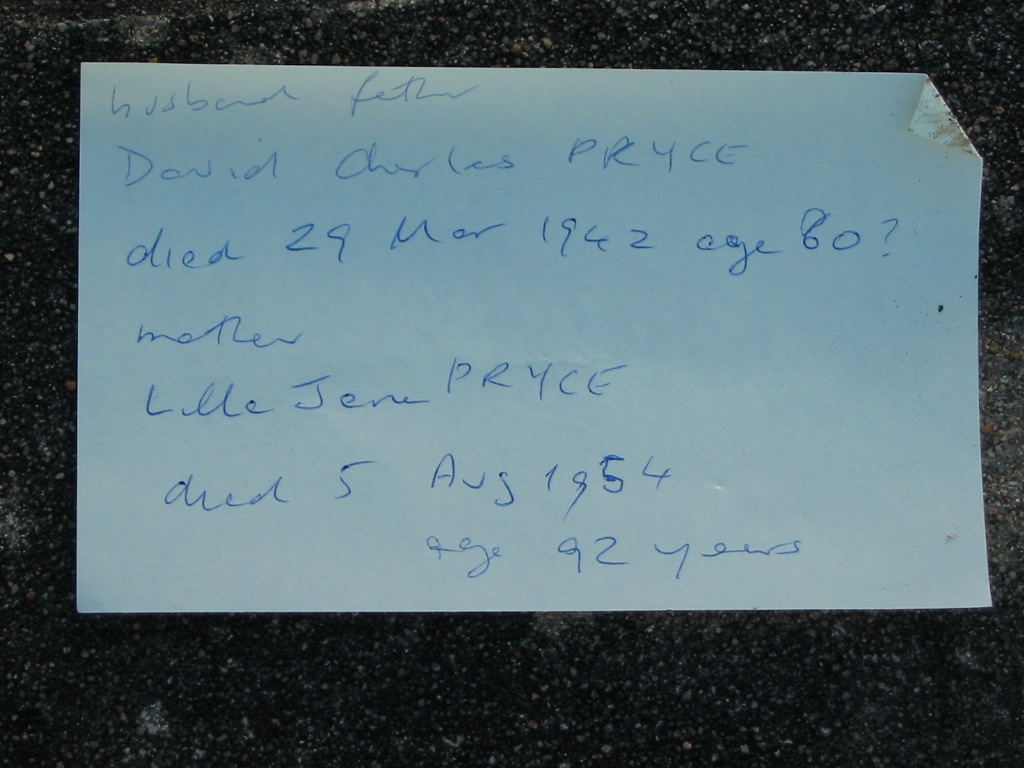 husband father
David Charles PRYCE
died 29 Mar 1942 age 80?
mother
Lille Jane PRYCE
died 5 Aug 1954
age 92 years